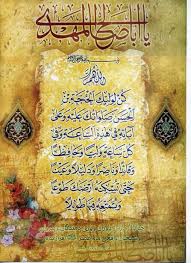 يا اباصالح المهدی
اَللّهُمَّ
كُنْ لِوَلِيِّكَ الْحُجَّةِ بْنِ
الْحَسَنِ صَلَواتُكَ عَلَيْهِ وَعَلى
آبائِهِ في هذِهِ السّاعَةِ وَفي
كُلِّ ساعَةٍ وَلِيّاً وَحافِظاً
وَقائِداً وَناصِراً وَدَليلاً وَعَيْناً
حَتّى تُسْكِنَهُ اَرْضَكَ طَوْعاً
وَتُمَتِّعَهُ فيها طَويلاً